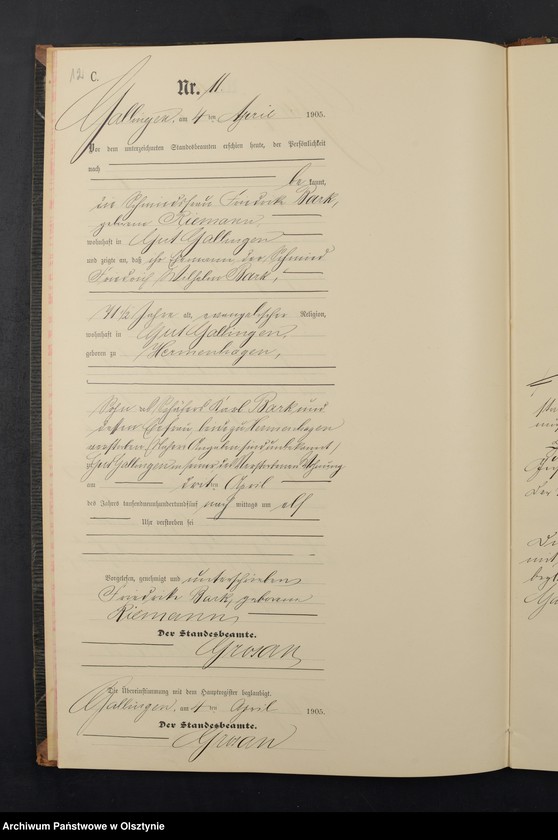 C.
Nr. 11
Gallingen, am 4ten April 1905.
Vor dem unterzeichneten Standesbeamten erschien heute, der Persönlichkeit
nach
be kannt,
die Schmiedefrau Friedricke Bark,
geborene Riemann
wohnhaft in Gut Gallingen
und zeigte an, daß ihr Ehemann der Schmied
Friedrich Wilhelm Bark,
71 1/2 Jahre alt, evangelischer Religion,
wohnhaft in Gut Gallingen,
geboren zu Hermenhagen,
Sohn des Schäfers Karl Bark und
dessen Ehefrau, beide zu Hermenhagen
verstorben (Nähere Angaben sind unbekannt)
zu Gut Gallingen in seiner des Verstorbenen Wohnung
am April
des Jahres tausendneunhundertundfünf nach mittags um elf
Uhr verstorben sei
Vorgelesen, genehmigt und unterschrieben
Friedricke Bark, geborene
Riemann
Der Standesbeamte.
Grosan
Die Übereinstimmung mit dem Hauptregister beglaubigt.
Gallingen, am 4ten April 1905.
Der Standesbeamte.
Grosan
Archiwum Państwowe w Olsztynie